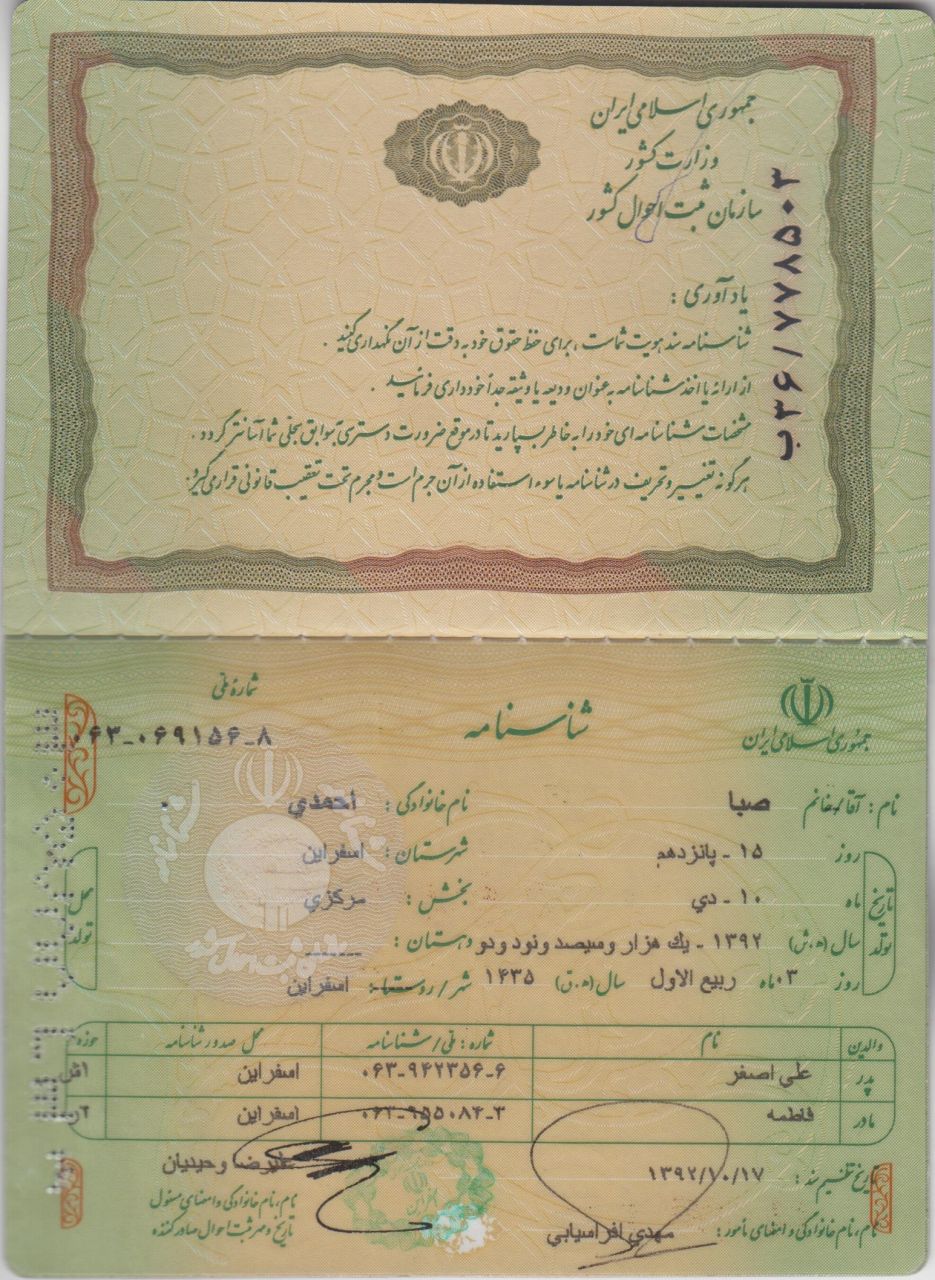 جمهوری اسلامی ایران
وزارت کشور
سازمان ثبت احوال کشور
ب۳۶/۷۷۸۵۰۳
یادآوری :
شناسنامه سند هویت شماست ، برای حفظ حقوق خود به دقت از آن نگهداری کنید .
از ارائه یا اخذ شناسنامه به عنوان ودیعه یا وثیقه جداً خودداری فرمائید .
مشخصات شناسنامه ای خود را به خاطر بسپارید تا در موقع ضرورت دسترسی به سوابق سجلی شما آسانتر گردد .
هرگونه تغییر و تحریف در شناسنامه یا سوء استفاده از آن جرم است و مجرم تحت تعقیب قانونی قرار می گیرد .
جمهوری اسلامی ایران
شناسنامه
شماره ملی
۰۶۳-۰۶۹۱۵۶-۸
نام : آقا/خانم صبا نام خانوادگی : احمدي
تاریخ تولد
محل تولد
روز ۱۵ - پانزدهم شهرستان : اسفراين
ماه ۱۰ - دي بخش : مركزي
سال (ه.ش) ۱۳۹۲ - يك هزار و سيصد و نود و دو دهستان : ------
روز ۰۳ ماه ربيع الاول سال (ه.ق) ۱۴۳۵ شهر / روستا : اسفراين
والدین نام شماره : ملی / شناسنامه محل صدور شناسنامه حوزه
پدر علي اصغر ۰۶۳-۹۴۲۳۵۶-۶ اسفراين ۱ش
مادر فاطمه ۰۶۳-۹۵۵۰۸۴-۳ اسفراين ۲ر
تاریخ تنظیم سند : ۱۳۹۲/۱۰/۱۷ عليرضا وحيديان
نام، نام خانوادگی و امضای مأمور : مهدي افراسيابي
نام، نام خانوادگی و امضای مسئول
تاریخ و مهر ثبت احوال صادر کننده